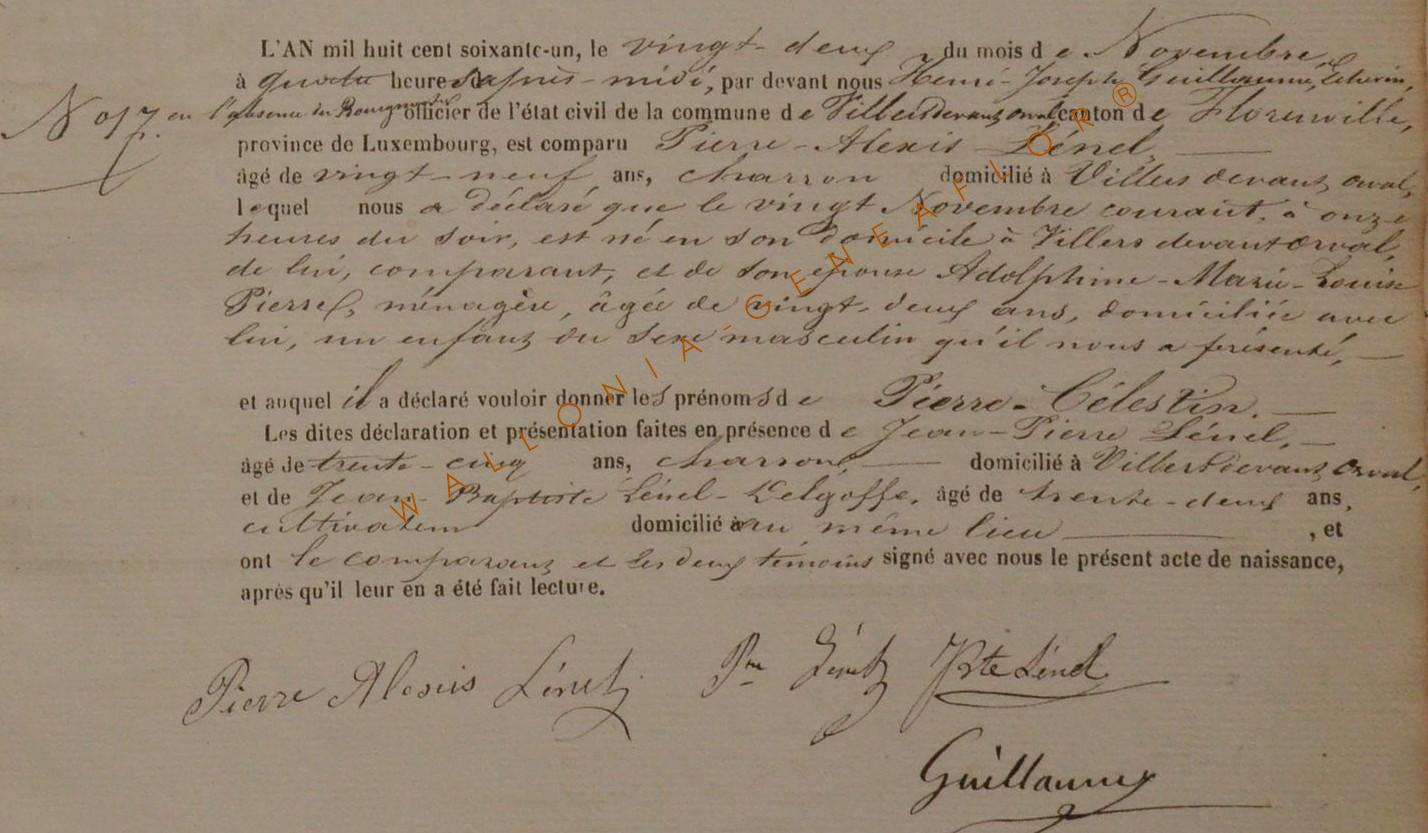 L'AN mil huit cent soixante-un, le vingt-deux du mois de Novembre,
à quatre heures d'après-midi, par devant nous Henri-Joseph Guillaume, Echevin,
No 17. en l'absence du Bourgmestre officier de l'état civil de la commune de Villers devant orval canton de Florenville,
province de Luxembourg, est comparu Pierre-Alexis Lénel
âgé de vingt-neuf ans, charron domicilié à Villers devant orval,
lequel nous a déclaré que le vingt Novembre courant, à onze
heures du soir, est né en son domicile à Villers devant orval,
de lui, comparant, et de son épouse Adolphine-Marie-Louise
Pierret, ménagère, âgée de vingt-deux ans, domiciliée avec
lui, un enfant du sexe masculin qu'il nous a présenté,
et auquel il a déclaré vouloir donner les prénoms de Pierre-Célestin.
Les dites déclaration et présentation faites en présence de Jean-Pierre Lénel,
âgé de trente-cinq ans, charron, domicilié à Villers devant orval,
et de Jean-Baptiste Lénel-Delgoffe, âgé de trente-deux ans,
cultivateur domicilié au même lieu , et
ont le comparant et les deux témoins signé avec nous le présent acte de naissance,
après qu'il leur en a été fait lecture.
Pierre Alexis Lénel Pre Lénel JBte Lénel
Guillaume
WALLONIA-GENEAFLOR®